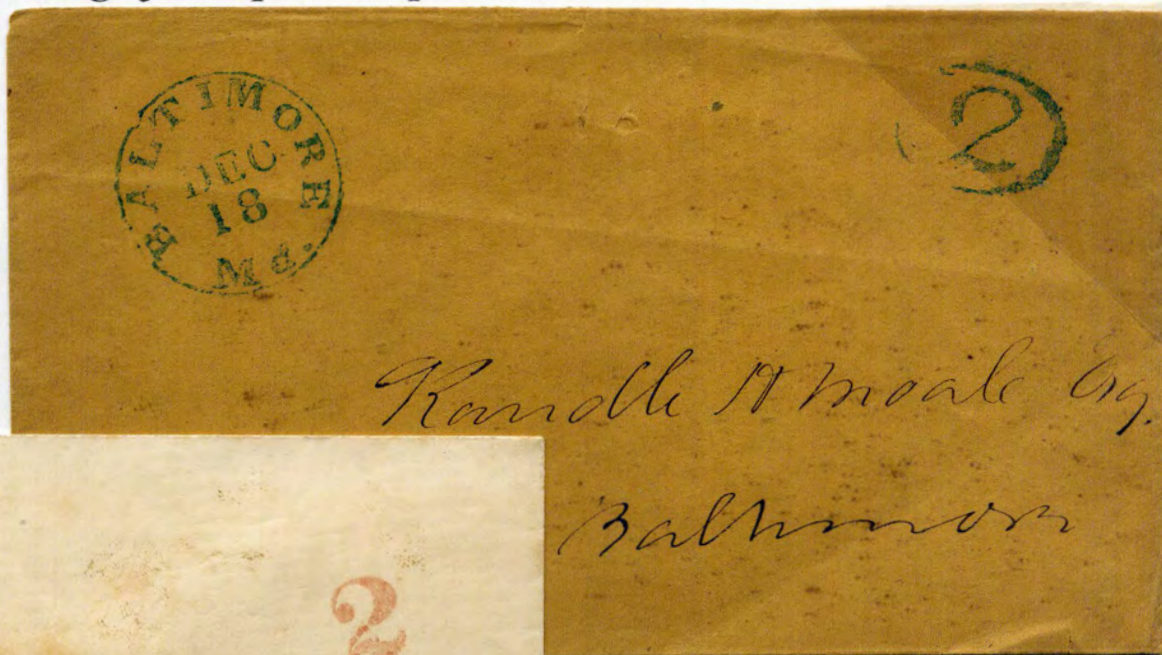 BALTIMORE Md.
DEC
18
2
Randle H Moale Esq.
Baltimore
2